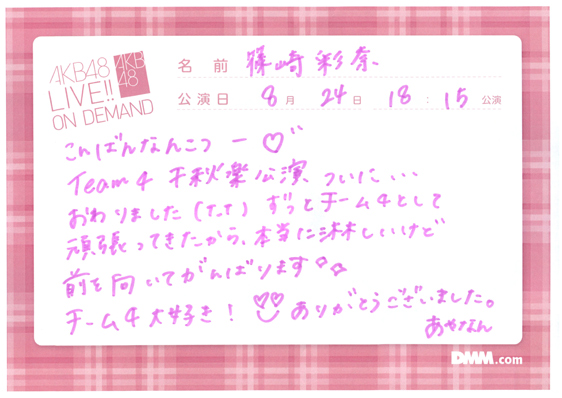 AKB48
LIVE!!
ON DEMAND
AKB
48
名前 篠崎彩奈
公演日 8月 24日 18:15 公演
こんばんなんこつー♡"
Team4 千秋楽公演 ついに...
おわりました(T.T) ずっとチーム4として
頑張ってきたから、本当に淋しいけど
前を向いてがんばります
チーム4大好き! ありがとうございました。
あやなん
DMM.com